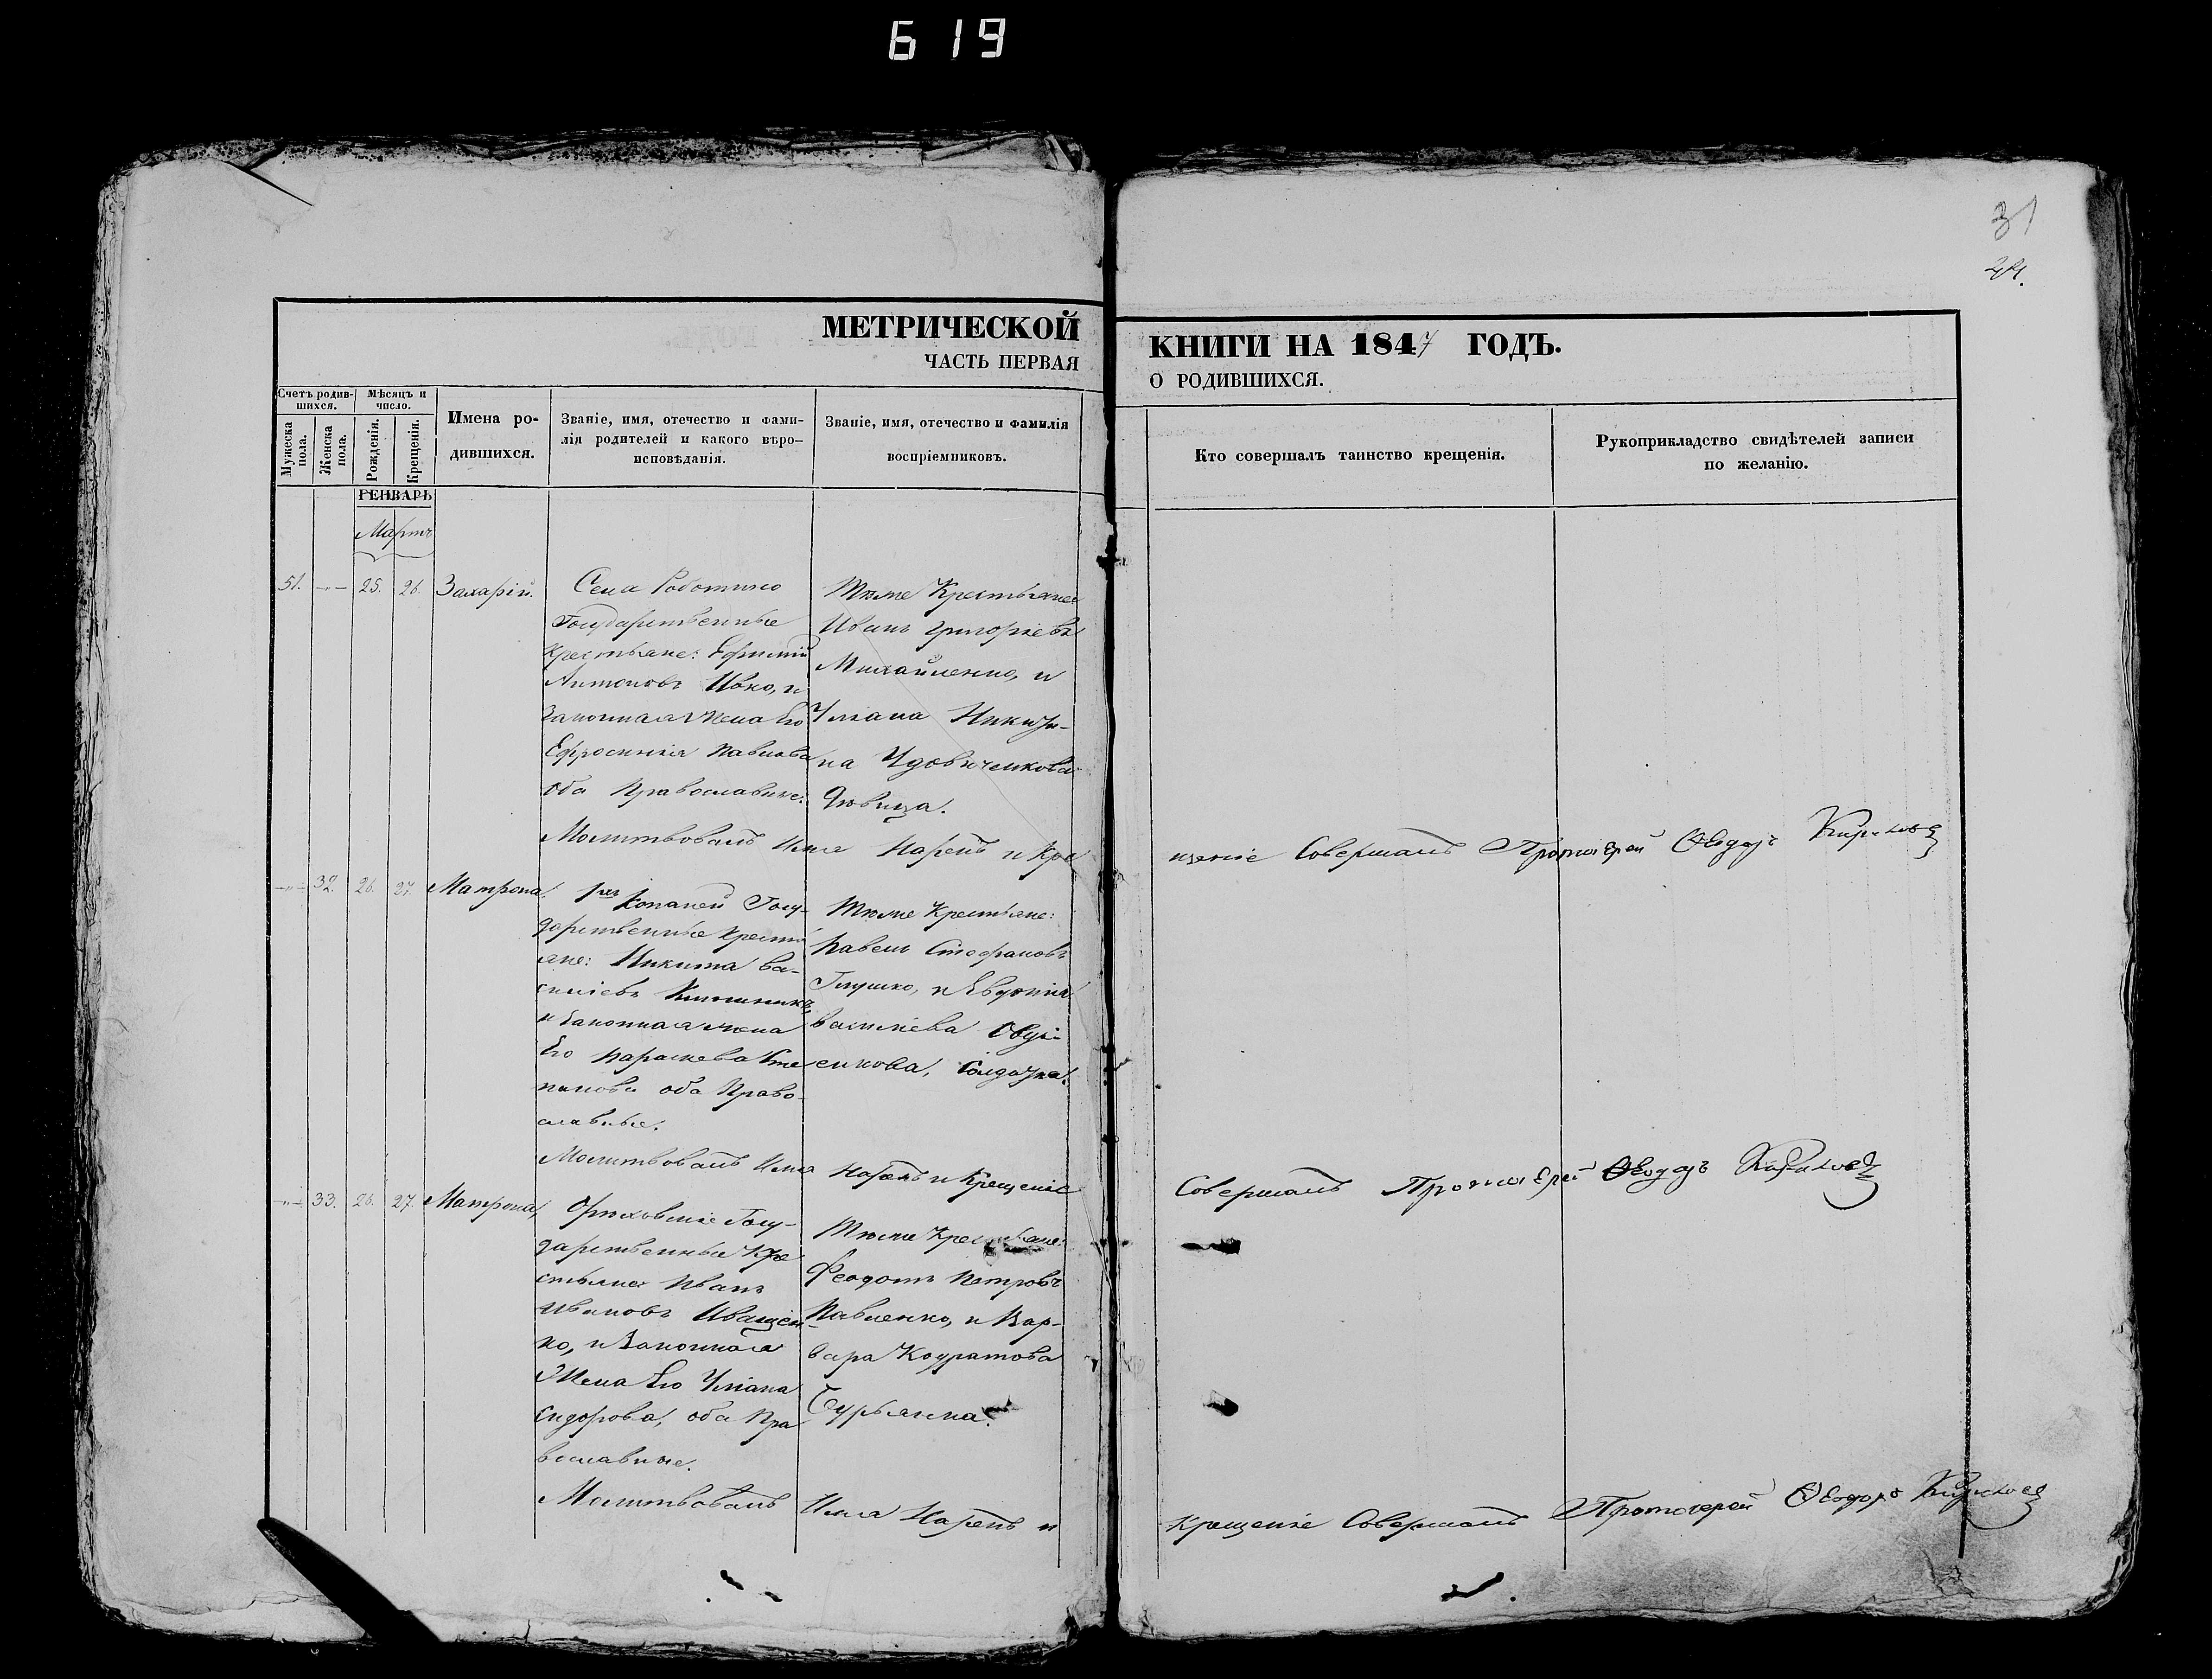 619
31
24.
МЕТРИЧЕСКОЙ
ЧАСТЬ ПЕРВАЯ
КНИГИ НА 1847 ГОДЪ.
О РОДИВШИХСЯ.
Счетъ родив-
шихся.
Мужеска
пола.
Женска
пола.
Мѣсяцъ и
число.
Рожденія.
Крещенія.
Имена ро-
дившихся.
Званіе, имя, отечество и фами-
лія родителей и какого вѣро-
исповѣданія.
Званіе, имя, отечество и фамилія
воспріемниковъ.
Кто совершалъ таинство крещенія.
Рукоприкладство свидѣтелей записи
по желанію.
ГЕНВАРЬ
Мартъ
51. -"- 25. 26. Захарій.
Села Роботино
Государственные
крестьяне: Ефимій
Антоновъ Ивко, и
Законная жена Его
Ефросинія Павлова
оба Православные.
Тѣже Крестьяне
Иванъ Григорьевъ
Михайленко, и
Уліана Никити-
на Удовиченкова
Дѣвица.
Молитвовалъ Имя Нарекъ и Кре
щеніе Совершалъ Протоіерей Ѳеодоръ Кириловъ
-"- 32. 26. 27. Матрона.
Копаней Госу-
дарственные крестья
яне: Никита Ва-
силіевъ
и Законная жена
Его Параскева Сте
панова оба Право-
славные.
Тѣже Крестьяне:
Павелъ Стефановъ
Глушко, и Евдокія
Василіева Овді-
енкова, Солдатка.
Молитвовалъ Имя Нарекъ и Крещеніе
Совершалъ Протоіерей Ѳеодоръ Кириловъ
-"- 33. 26. 27. Матрона,
Орѣховскіе Госу-
дарственные Кре
стьяне Иванъ
Ивановъ Иващен
ко, и Законная
Жена Его Уліана
Сидорова, оба Пра
вославные.
Тѣже Крестьяне:
Феодотъ Петровъ
Павленко, и Вар-
вара Кондратова
Молитвовалъ Имя Нарекъ и
Крещеніе Совершалъ Протоіерей Ѳеодоръ Кириловъ